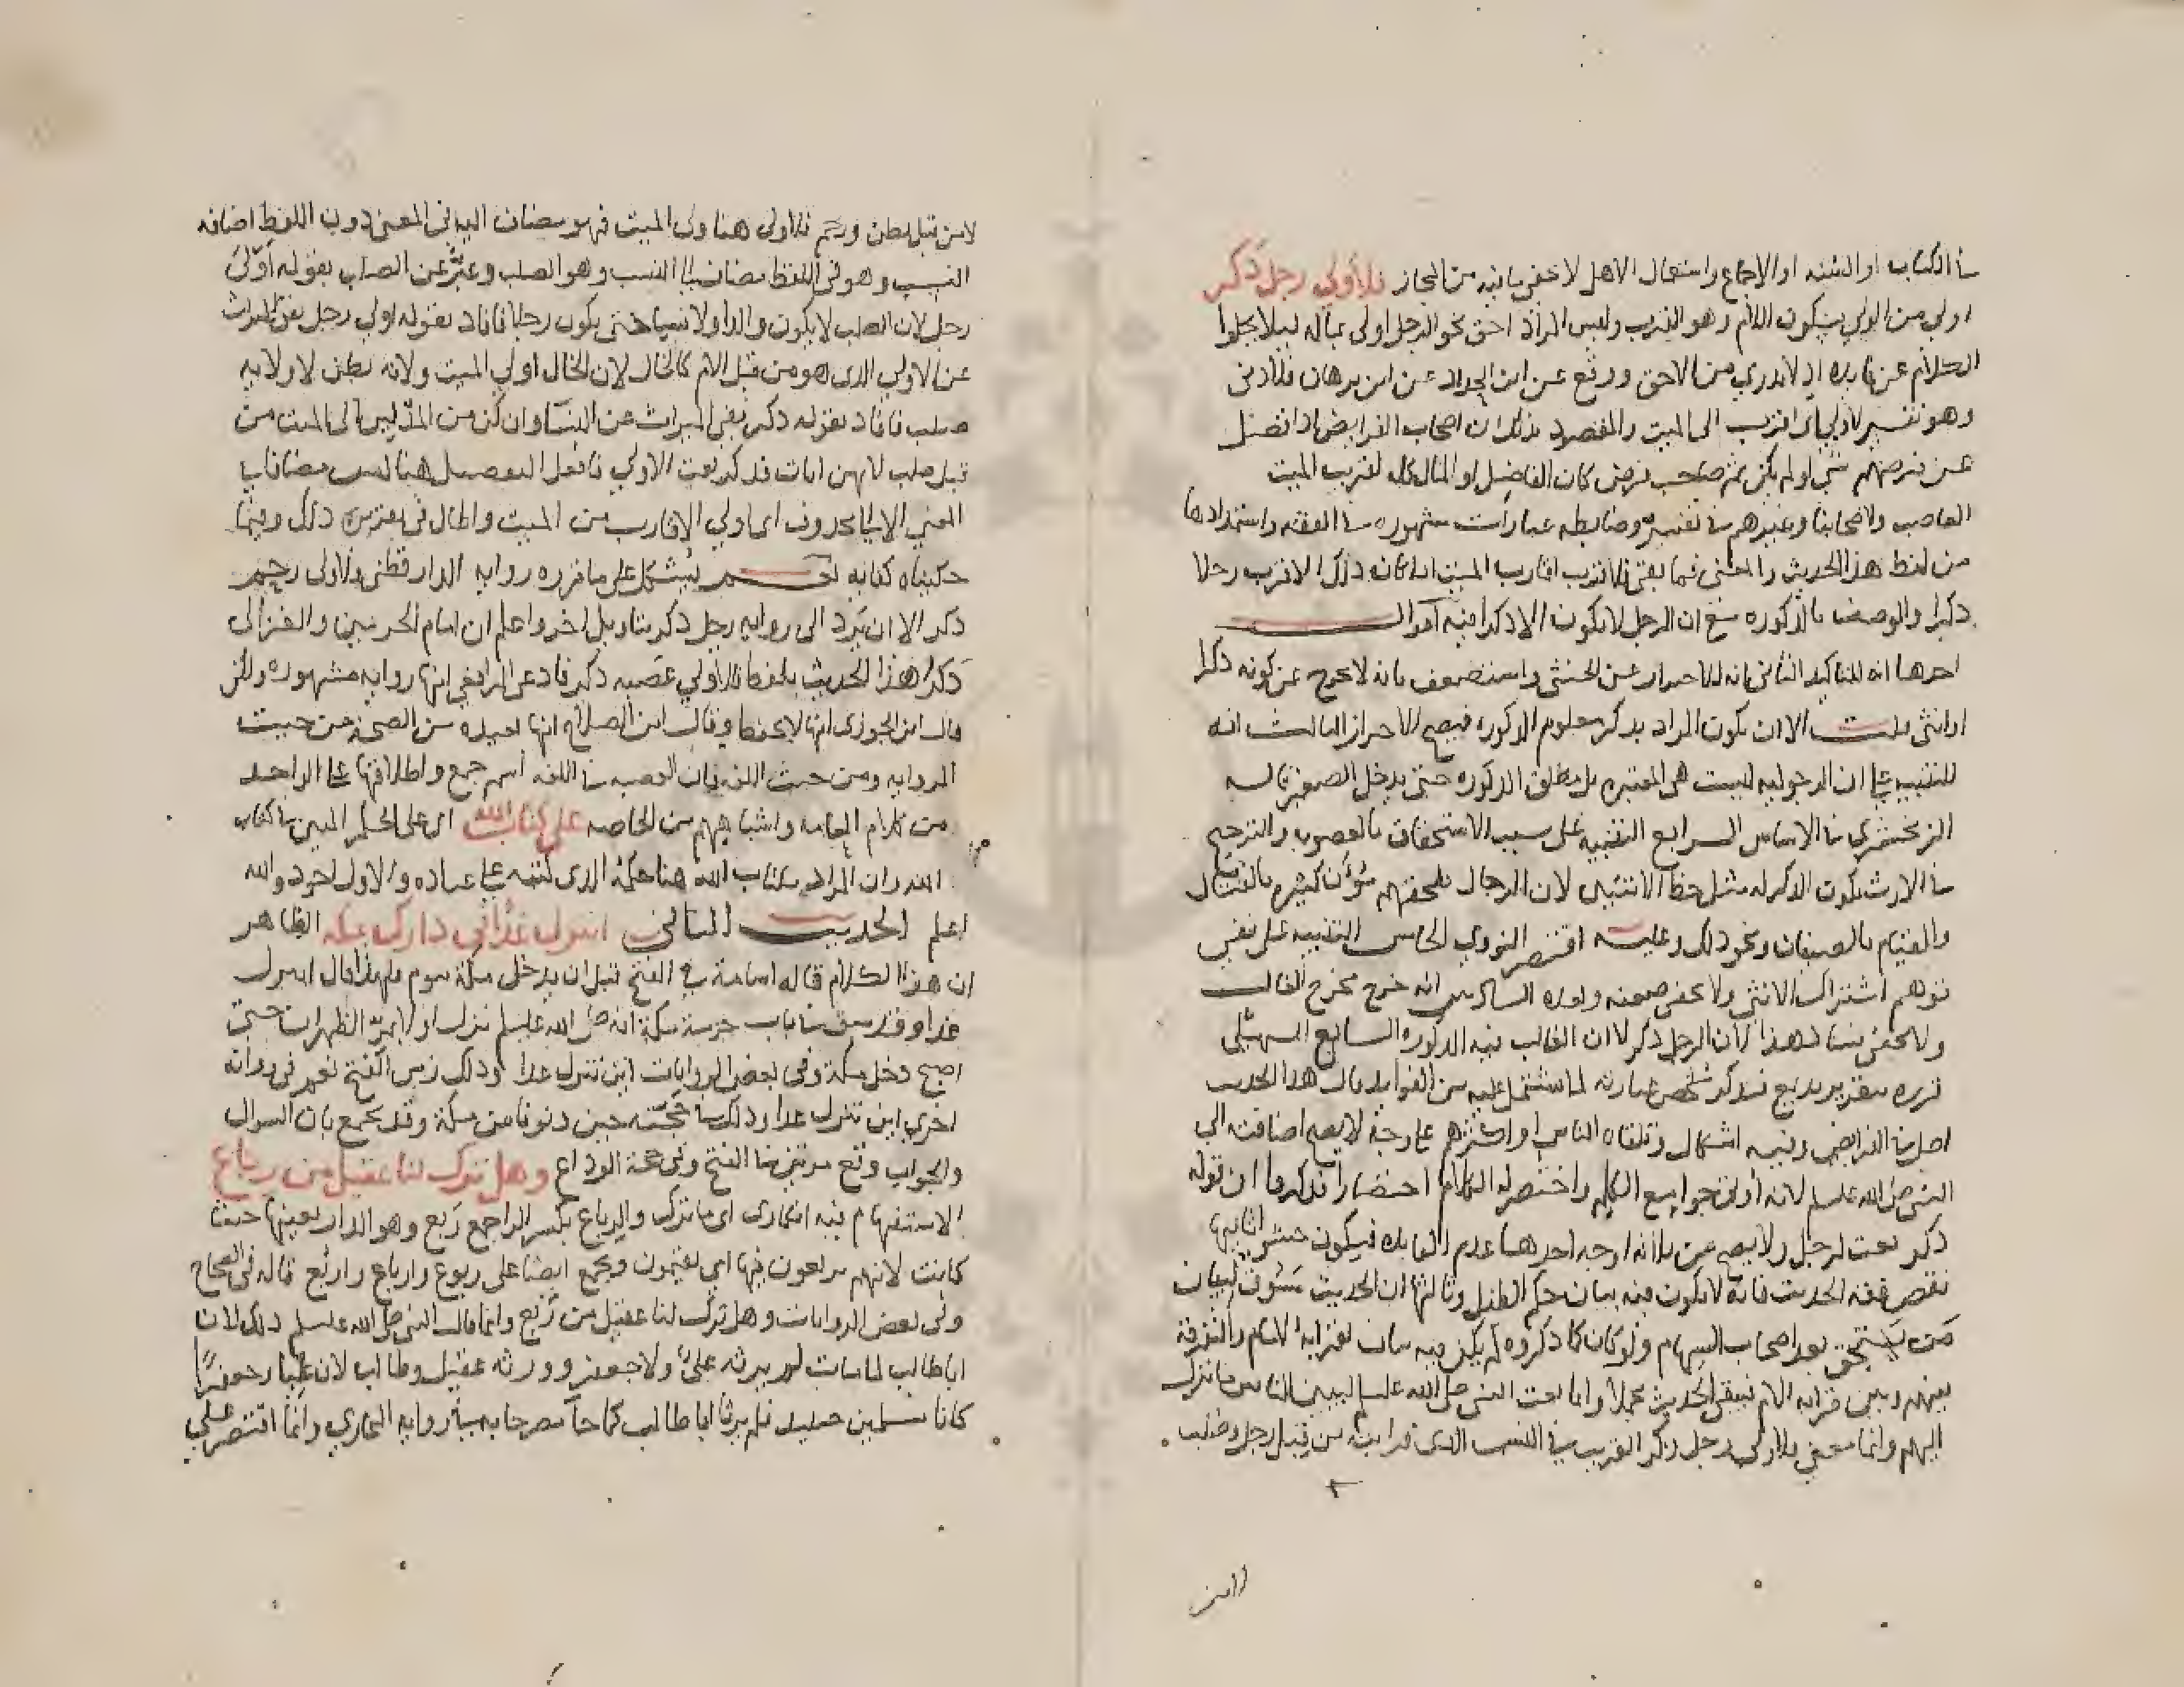 في الكتاب او السنه او الاجماع واستعمال الاهل لا يخفى ما فيه من المجاز فلأولى رجل ذكر
اولى من الولي بسكون اللام وهو القرب وليس المراد احق نحو الرجل اولى بماله ليلا يخلوا
الكلام عن فايده اذ لا ندري من الاحق ووقع عن ابن الحداد عن ابن برهان فلادنى
وهو تفسير لاولى اى اقرب الى الميت والمقصود بذلك ان اصحاب الفرايض اذا فضل
عن فرضهم شي او لم يكن ثم صاحب فرض كان الفاضل او المال كله لقريب الميت
العاصب ولاصحابنا وغيرهم في تفسيره وضابطه عبارات مشهوره في الفقه واستمدادها
من لفظ هذا الحديث والمعنى فما بقي فلاقرب اقارب الميت اذا كان ذلك الاقرب رجلا
ذكرا والوصف بالذكوره مع ان الرجل لا يكون الا ذكرا فيه اقوال
احدها انه للتاكيد الثاني انه للاحتراز عن الخنثى واستضعف بانه لا يخرج عن كونه ذكرا
او انثى قلت الا ان يكون المراد بذكر معلوم الذكوره فيصح الاحتراز الثالث انه
للتنبيه على ان الرجوليه ليست هى المعتبره بل مطلق الذكوره حتى يدخل الصغير قاله
الزمخشري في الاساس الرابع التنبيه على سبب الاستحقاق بالعصوبه والترجيح
في الارث بكون الذكر له مثل حظ الانثيين لان الرجال تلحقهم مؤن كثيره بالقتال
والقيام بالضيفان ونحو ذلك وعليه اقتصر النووي الخامس التنبيه على نفي
توهم اشتراك الانثى ولا يخفى ضعفه وبعده السادس انه خرج مخرج الغالب
ولا يخفى فساد هذا لان الرجل ذكر لا ان الغالب فيه الذكوره السابع السهيلي
قرره بتقرير بديع فلنذكر ملخص عبارته لما اشتمل عليه من الفوايد قال هذا الحديث
اصل في الفرايض وفيه اشكال وتلقاه الناس او اكثرهم على وجه لا يصح اضافته الى
النبي صلى الله عليه وسلم لانه أوتي جوامع الكلم واختصر له الكلام اختصارا فذكروا ان قوله
ذكر نعت لرجل ولا يصح من ثلاثه اوجه احدها عدم الفايده فيكون حشوا ثانيها
نقص فقه الحديث فانه لا يكون فيه بيان حكم الطفل وثالثها ان الحديث مسوق لبيان
من يستحق بعد اصحاب السهام ولو كان كما ذكروه لم يكن فيه بيان لقرابه الام والتفرقه
بينهم وبين قرابه الاب فيبقى الحديث مجملا وانما بعث النبي صلى الله عليه وسلم ليبين للناس ما نزل
اليهم وانما معنى فلاولى رجل ذكر القريب في النسب الذي قرابته من قبل رجل وصلب
لا من قبل بطن ورحم فالاولى هنا ولى الميت فهو مضاف اليه في المعنى دون اللفظ اضافه
النسب وهو في اللفظ مضاف الى النسب وهو الصلب وعبّر عن الصلب بقوله أَوْلَى
رجل لان الصلب لا يكون والدا ولا نسبا حتى يكون رجلا فافاد بقوله لاولى رجل نفي الميراث
عن الاولى الذى هو من قبل الام كالخال لان الخال اولى الميت ولاده بطن لا ولايه
صلب فافاد بقوله ذكر نفي الميراث عن النسا وان كن من المدلين الى الميت من
قبل صلب لانهن اناث فذكر نعت الاولى فافعل التفضيل هنا ليس مضافا في
المعنى الا الى محذوف اى اولى الاقارب من الميت واطال في تقرير ذلك وفيما
حكيناه كفايه نعم يشكل على ما قرره روايه الدارقطني فلاولى رحم
ذكر الا ان يرد الى روايه رجل ذكر بتاويل اخر واعلم ان امام الحرمين والغزالى
ذكرا هذا الحديث بلفظ فلاولى عصبه ذكر فادعى الرافعى انها روايه مشهوره ولكن
قال ابن الجوزى انها لا تحفظ وقال ابن الصلاح انها بعيده من الصحه من حيث
الروايه ومن حيث اللغه فان العصبه في اللغه اسم جمع واطلاقها على الواحد
من كلام العامه واشباههم من الخاصه على كتاب الله اى على الحكم المبين في كتاب
الله وان المراد بكتاب الله هنا حكمه الذى كتبه على عباده والاول اجود والله
اعلم الحديث الثانى اتنزل غدا في دارك بمكه الظاهر
ان هذا الكلام قاله اسامة في الفتح قبل ان يدخل مكة بيوم فلهذا قال اتنزل
غدا وقد سبق في باب حرمة مكة انه صلى الله عليه وسلم نزل اولا بمر الظهران حتى
اصبح دخل مكة وفي بعض الروايات اين تنزل غدا وذلك زمن الفتح نعم في روايه
اخرى اين تنزل غدا وذلك في حجته حين دنونا من مكة وقد يجمع بان السوال
والجواب وقع مرتين في الفتح وفي حجة الوداع وهل ترك لنا عقيل من رباع
الاستفهام فيه انكارى اى ما ترك والرباع بكسر الرا جمع رَبع وهو الدار بعينها حيث
كانت لانهم يربعون فيها اى يقيمون ويجمع ايضا على ربوع وارباع واربُع قاله في الصحاح
وفى بعض الروايات وهل ترك لنا عقيل من رَبع وانما قال النبى صلى الله عليه وسلم ذلك لان
اباطالب لما مات لم يرثه علىّ ولا جعفر وورثه عقيل وطالب لان عليّا وجعفرًا
كانا مسلمين حينيذ فلم يرثا ابا طالب كما جآ مصرحا به في روايه البخاري وانما اقتصر على